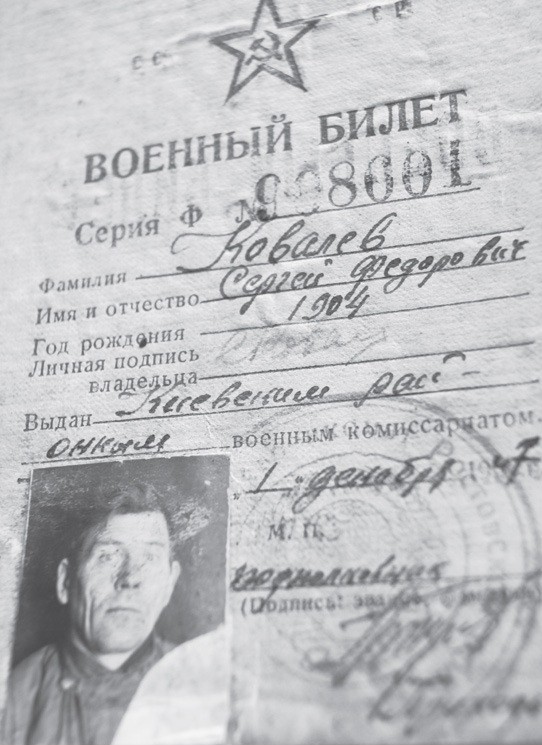 ВОЕННЫЙ БИЛЕТ
Серия Ф №
Фамилия Ковалев
Имя и отчество Сергей Федорович
Год рождения 1904
Личная подпись
владельца
Выдан Киевским рай-
онным военным комиссариатом.
„1" декабря 1947 г.
М. П.
(Подпись,